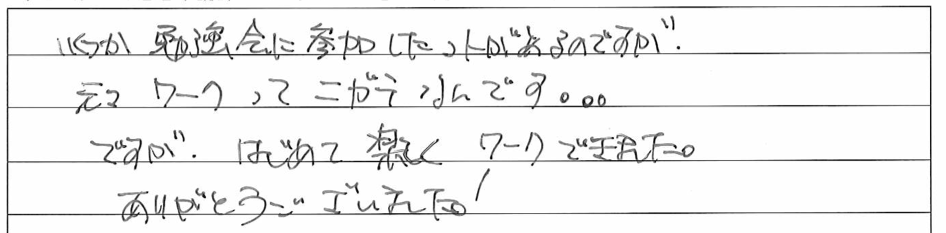 いくつか 勉強会に参加したことがあるのですが、
元々 ワークって にがてなんです。。。
ですが、はじめて楽しく ワークできました。
ありがとうございました!